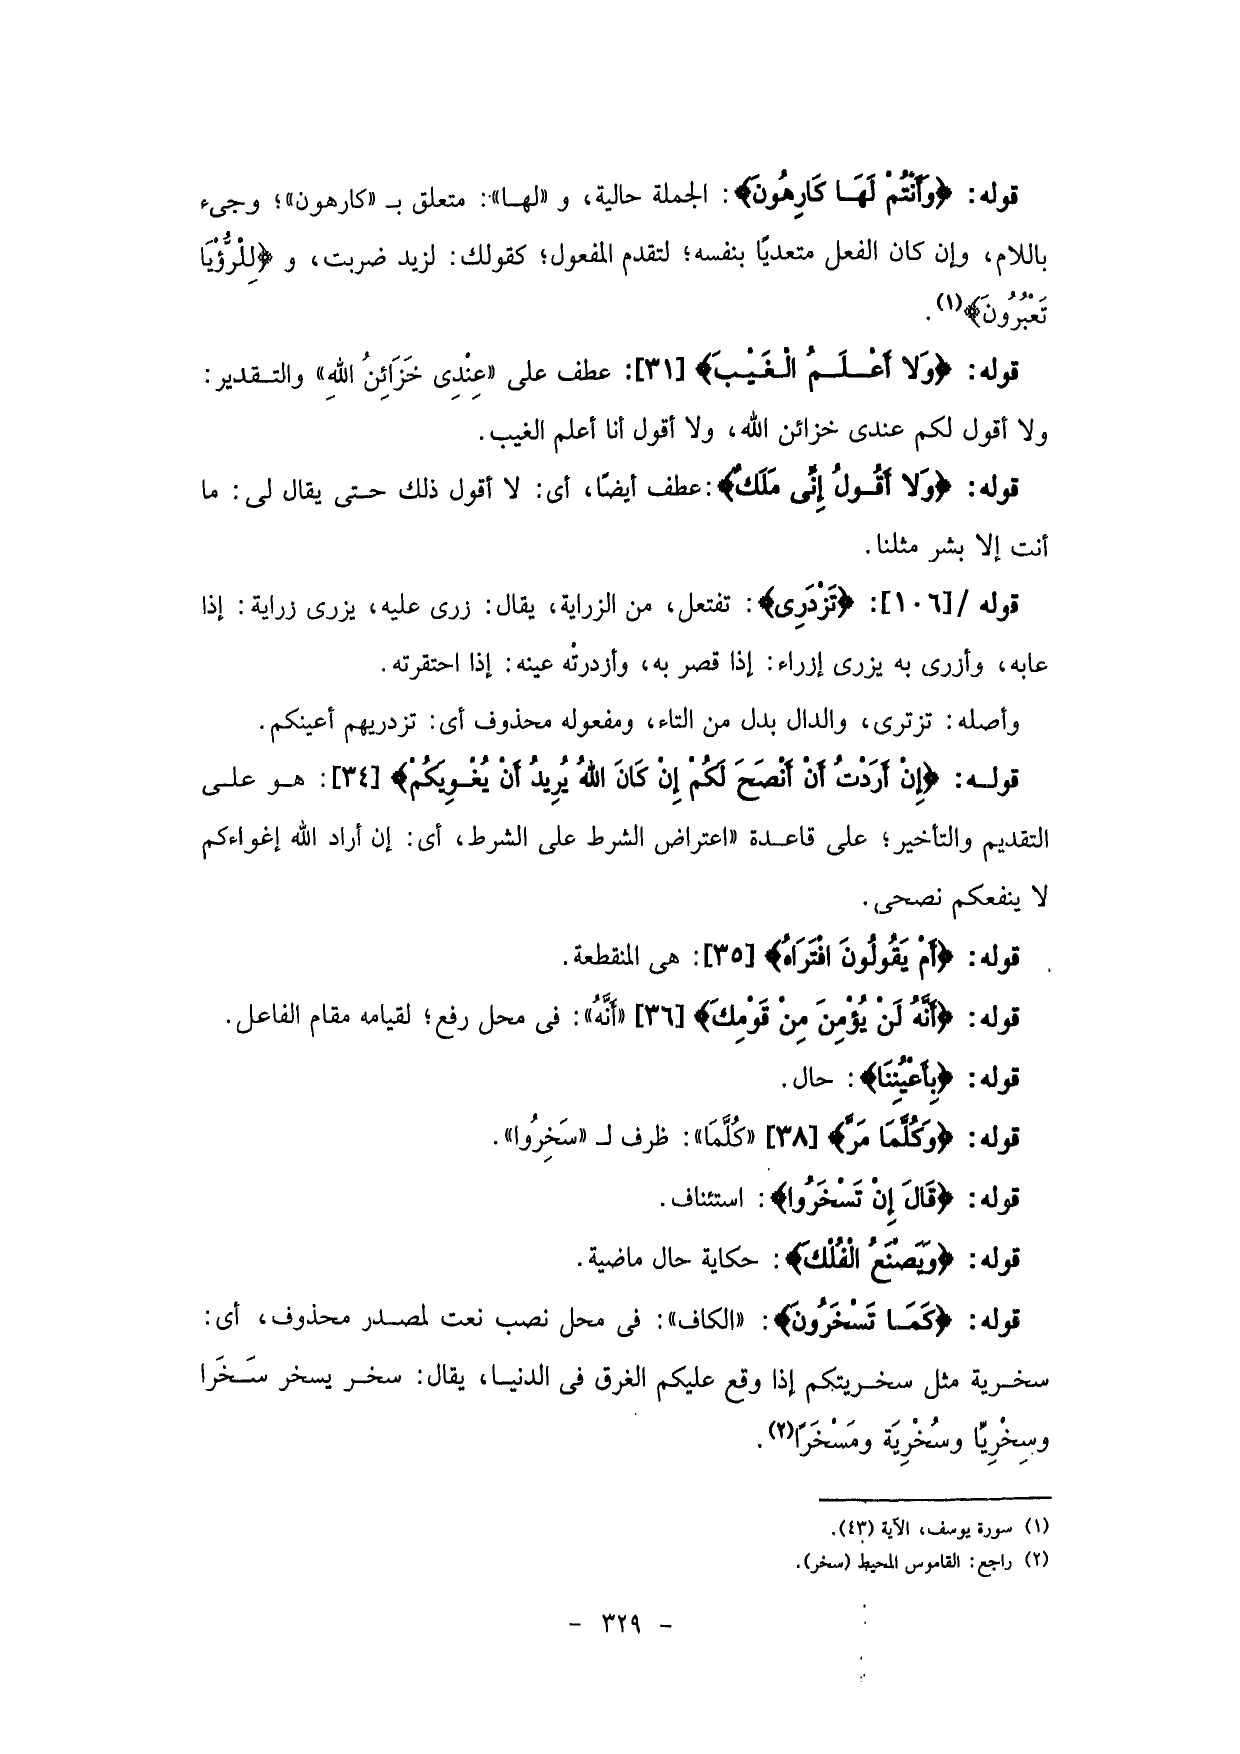 قوله: ﴿وَأَنْتُمْ لَهَا كَارِهُونَ﴾: الجملة حالية، و «لها»: متعلق بـ «كارهون»؛ وجىء
باللام، وإن كان الفعل متعديًا بنفسه؛ لتقدم المفعول؛ كقولك: لزيد ضربت، و ﴿لِلْرُّؤْيَا
تَعْبُرُونَ﴾(١).
قوله: ﴿وَلا أَعْلَمُ الْغَيْبَ﴾ [٣١]: عطف على «عِنْدِى خَزَائِنُ اللهِ» والتقدير:
ولا أقول لكم عندى خزائن الله، ولا أقول أنا أعلم الغيب.
قوله: ﴿وَلا أَقُولُ إِنِّى مَلَكٌ﴾:عطف أيضًا، أى: لا أقول ذلك حتى يقال لى: ما
أنت إلا بشر مثلنا.
قوله /[١٠٦]: ﴿تَزْدَرِى﴾: تفتعل، من الزراية، يقال: زرى عليه، يزرى زراية: إذا
عابه، وأزرى به يزرى إزراء: إذا قصر به، وأزدرتْه عينه: إذا احتقرته.
وأصله: تزترى، والدال بدل من التاء، ومفعوله محذوف أى: تزدريهم أعينكم.
قوله: ﴿إِنْ أَرَدْتُ أَنْ أَنْصَحَ لَكُمْ إِنْ كَانَ اللهُ يُرِيدُ أَنْ يُغْوِيَكُمْ﴾ [٣٤]: هو على
التقديم والتأخير؛ على قاعدة «اعتراض الشرط على الشرط، أى: إن أراد الله إغواءكم
لا ينفعكم نصحى.
قوله: ﴿أَمْ يَقُولُونَ افْتَرَاهُ﴾ [٣٥]: هى المنقطعة.
قوله: ﴿أَنَّهُ لَنْ يُؤْمِنَ مِنْ قَوْمِكَ﴾ [٣٦] «أَنَّهُ»: فى محل رفع؛ لقيامه مقام الفاعل.
قوله: ﴿بِأَعْيُنِنَا﴾: حال.
قوله: ﴿وَكُلَّمَا مَرَّ﴾ [٣٨] «كُلَّمَا»: ظرف لـ «سَخِرُوا».
قوله: ﴿قَالَ إِنْ تَسْخَرُوا﴾: استئناف.
قوله: ﴿وَيَصْنَعُ الْفُلْكَ﴾: حكاية حال ماضية.
قوله: ﴿كَمَا تَسْخَرُونَ﴾: «الكاف»: فى محل نصب نعت لمصدر محذوف، أى:
سخرية مثل سخريتكم إذا وقع عليكم الغرق فى الدنيا، يقال: سخر يسخر سَخَرا
وسِخْرِيًّا وسُخْرِيَة ومَسْخَرًا(٢).
(١) سورة يوسف، الآية (٤٣).
(٢) راجع: القاموس المحيط (سخر).
- ٣٢٩ -